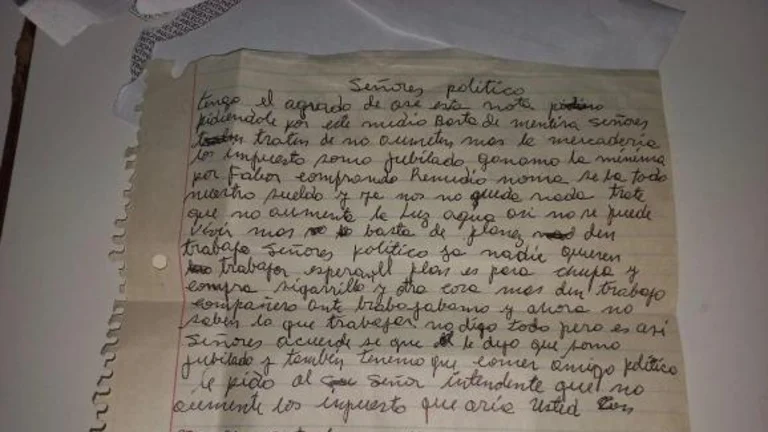 Señores politico
tengo el agrardo de ase esta nota
pidiendole por este medio Basta de mentira Señores
traten de no aumeten mas la mercaderia
los impuesto somo jubilado ganamo la minima
por fabor comprando Remudio noma se ba todo
nuestro sueldo y ya nos no queda nada trate
que no aumente la Luz agua asi no se puede
vivir mas basta de planez den
trabajo Señores politico ya nadie quieren
trabajar esperan el plan es para chupa y
compra sigarrillo y otra cosa mas den trabajo
compañero ante trabajabamo y ahora no
saben lo que trabajar no digo todo pero es asi
Señores acuerde se que le dijo que somo
jubilado y tambien tenemo que comer amigo politico
le pido al Señor intendente que no
aumente los impuesto que aria Usted con